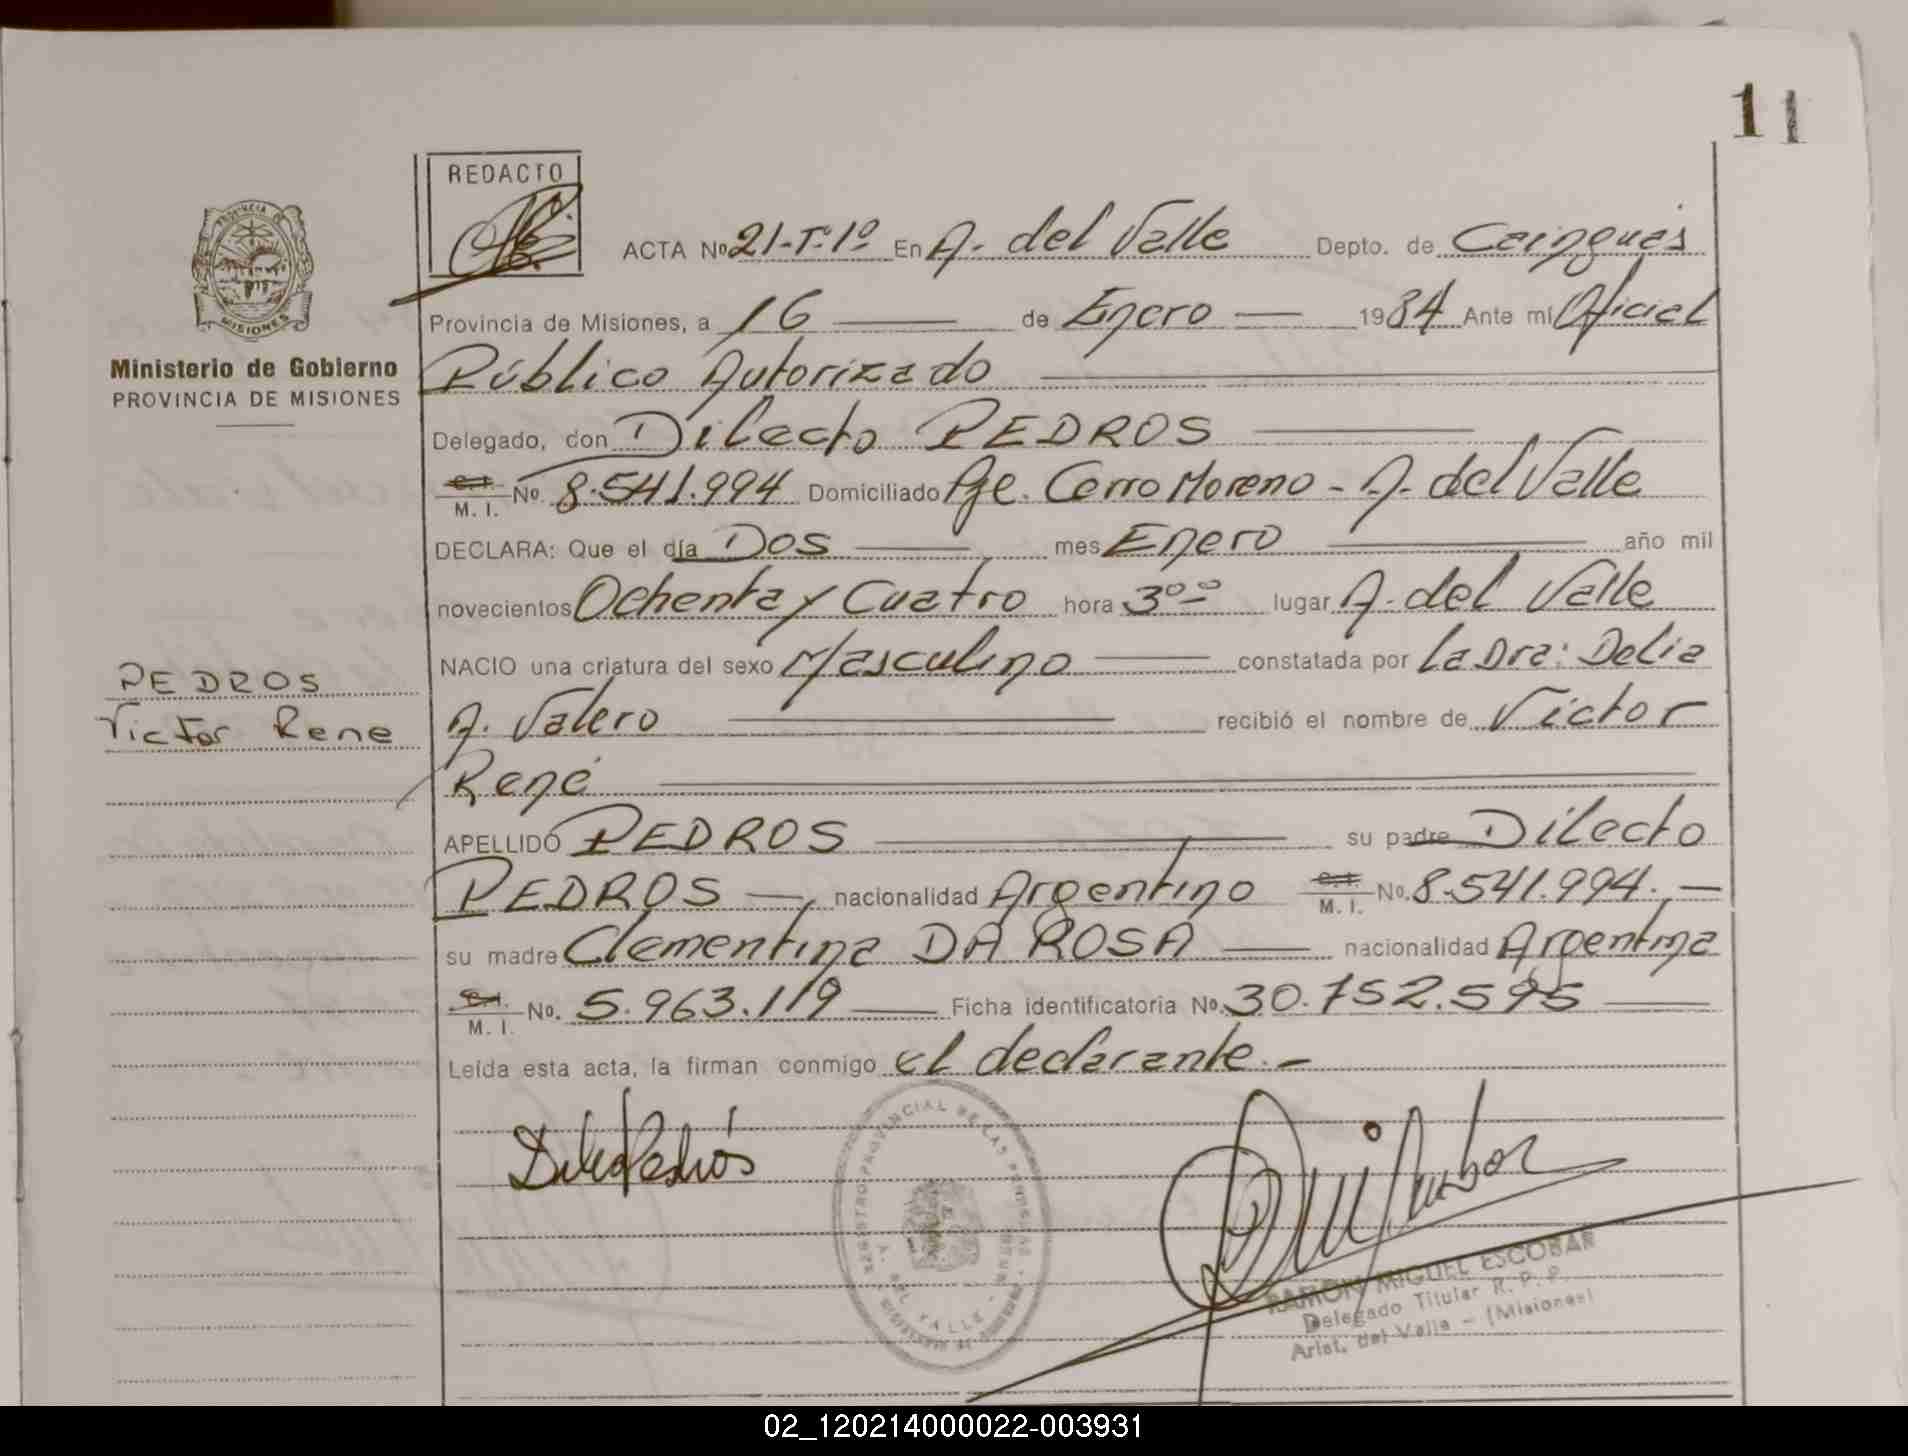 11
REDACTO
ACTA Nº 21-Tº1º En A. del Valle Depto. de Cainguás
Provincia de Misiones, a 16 de Enero 1984 Ante mi Oficial
Público Autorizado
MISIONES
Ministerio de Gobierno
PROVINCIA DE MISIONES
Delegado, don Dilecto PEDROS
M. I. Nº 8.541.994 Domiciliado Pje. Cerro Moreno - A. del Valle
DECLARA: Que el día Dos mes Enero año mil
novecientos Ochenta y Cuatro hora 3ºº lugar A. del Valle
NACIO una criatura del sexo Masculino constatada por la Dra: Delia
A. Valero recibió el nombre de Victor
René
PEDROS
Victor Rene
APELLIDO PEDROS su padre Dilecto
PEDROS nacionalidad Argentino M. I. Nº. 8.541.994.
su madre Clementina DA ROSA nacionalidad Argentina
M. I. Nº. 5.963.119 Ficha identificatoria Nº. 30.752.595
Leída esta acta, la firman conmigo el declarante.-
A. DEL VALLE
RAMON MIGUEL ESCOBAR
Delegado Titular R. P. P.
Arist. del Valle - (Misiones)
02_120214000022-003931